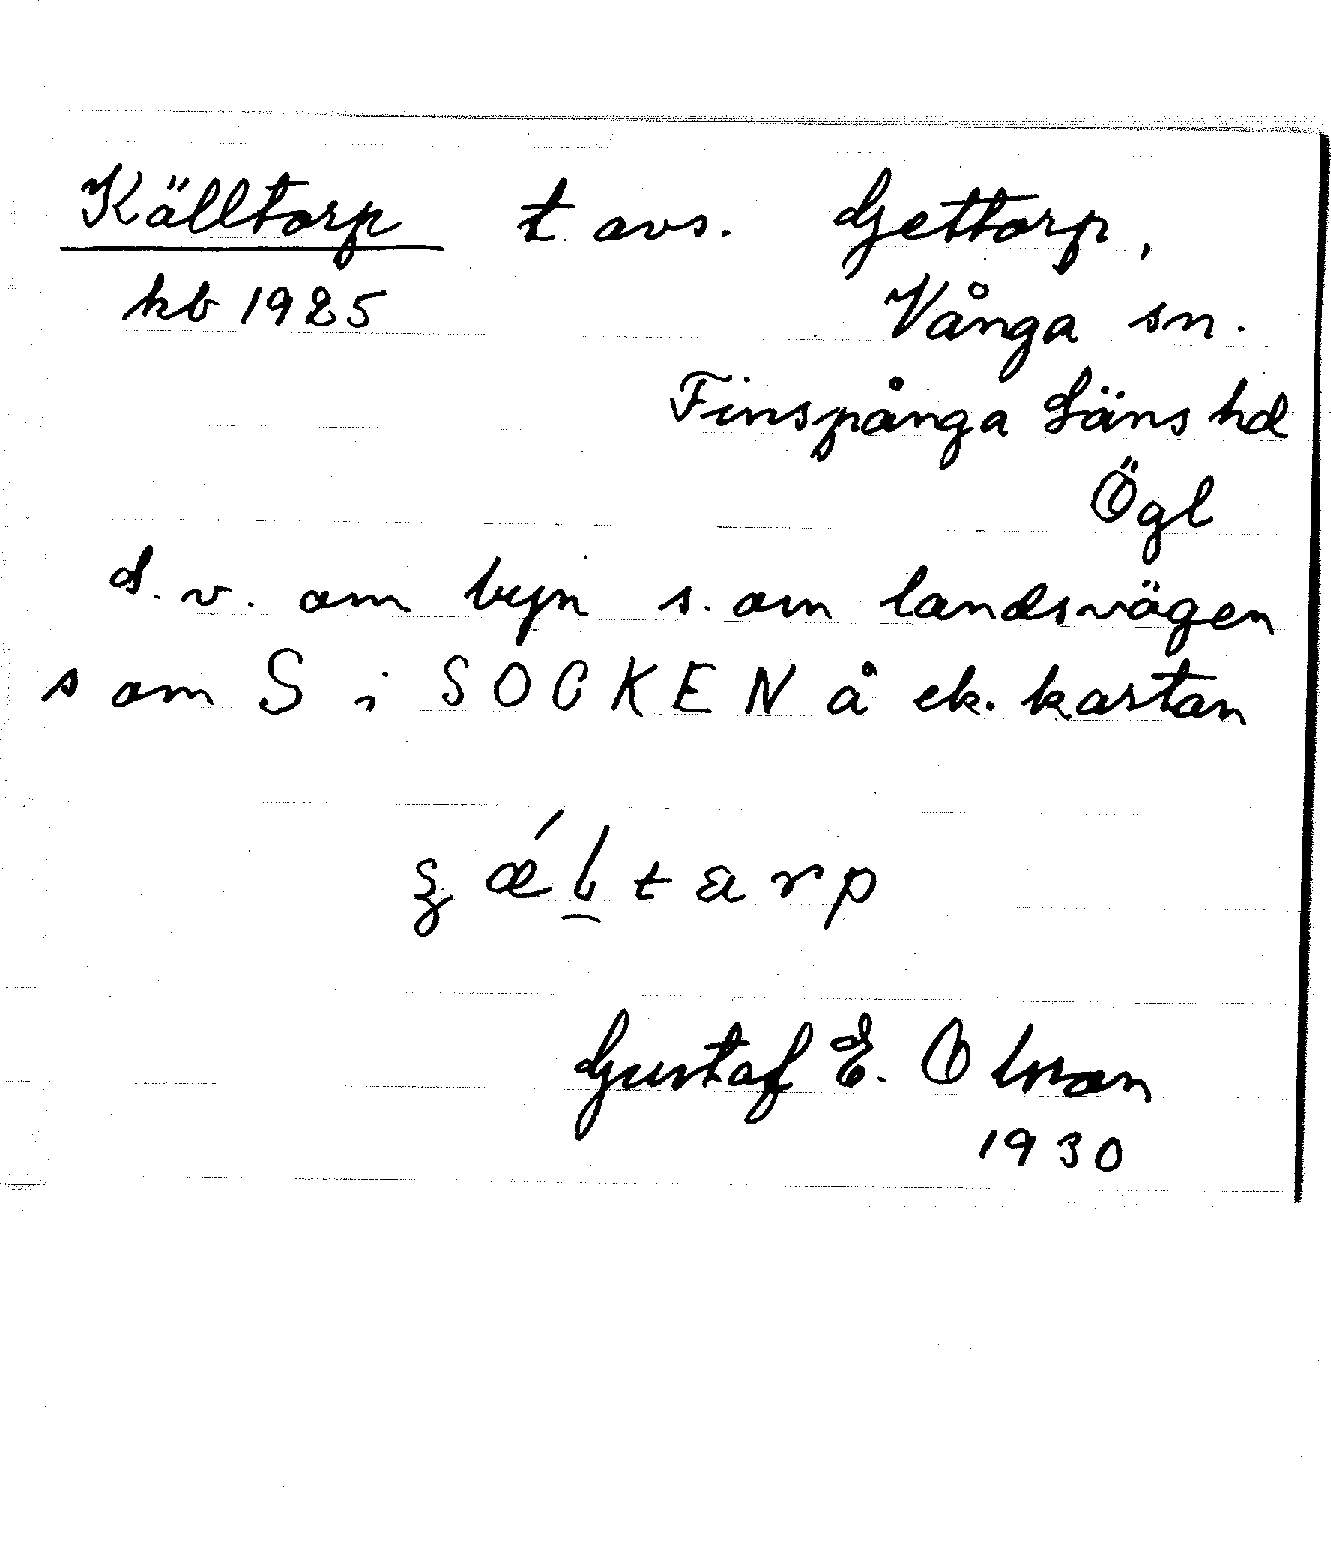 Källtorp t avs. Gettorp,
kb 1925 Vånga sn.
Finspånga Läns hd
Ögl
d. v. om byn s. om landsvägen
s om S i SOCKEN å ek. kartan
ʒǽl̯tarp
Gustaf E. Olsson
1930